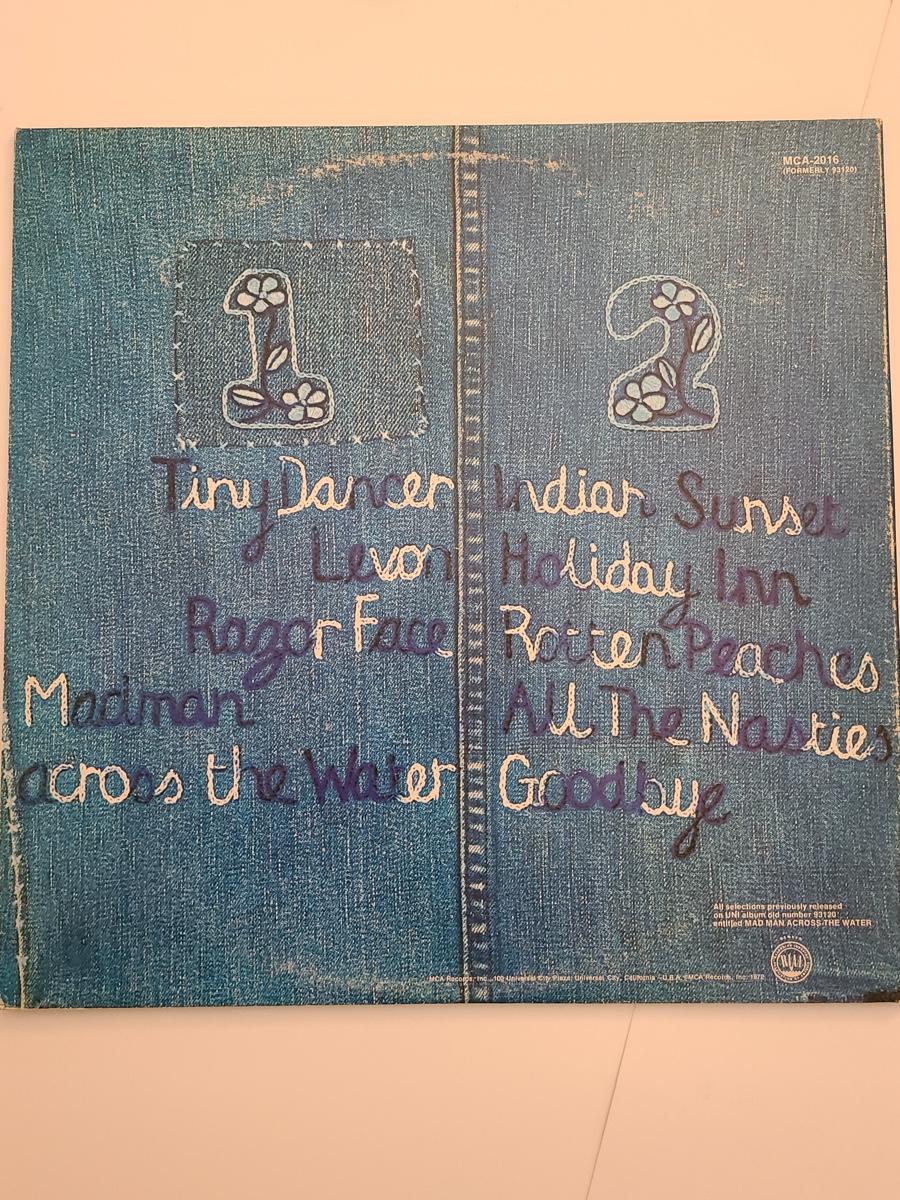 MCA-2016
(FORMERLY 93120)
1
Tiny Dancer
Levon
Razor Face
Madman
across the Water
2
Indian Sunset
Holiday Inn
Rotten Peaches
All The Nasties
Goodbye
All selections previously released
on UNI album old number 93120
entitled MAD MAN ACROSS THE WATER
MCA Records, Inc., 100 Universal City Plaza, Universal City, California - U.S.A. MCA Records, Inc. 1972